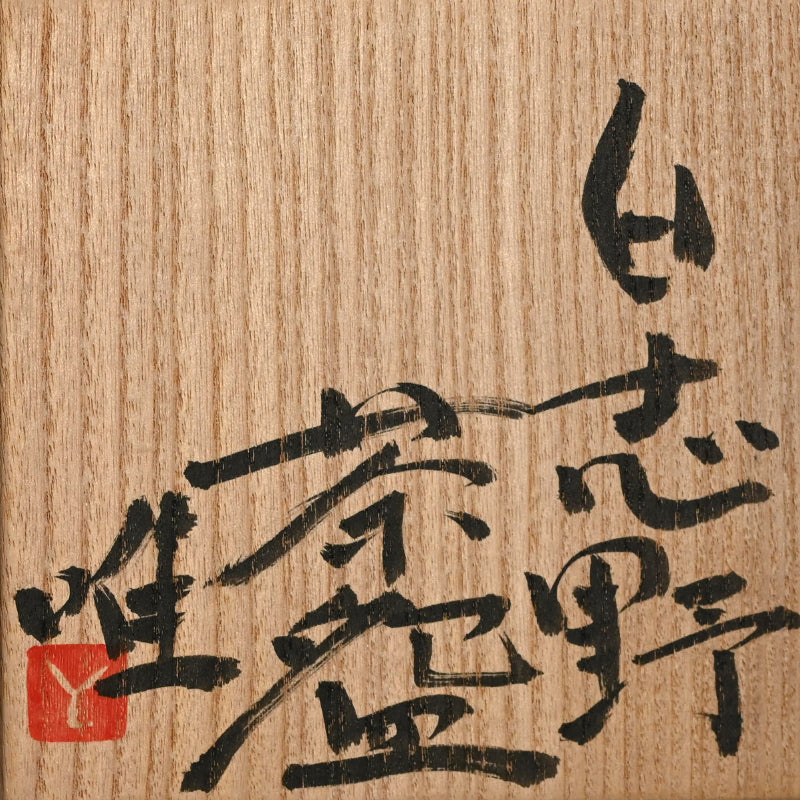 白志野
茶盌
唯
Y